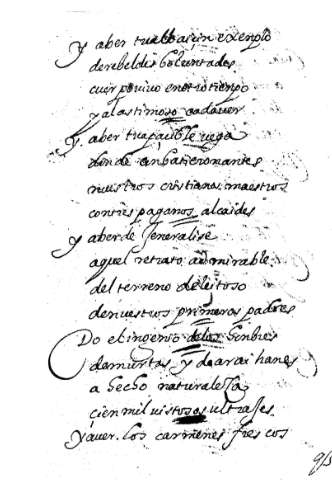 y aber tu albaicin exenplo
de rebeldes boluntades
cuerpo vivo en otro tienpo
ya lastimoso cadauer
y aber tu apacible uega
donde conbatieron antes
nuestros cristianos maestros
con tus paganos alcaides
y aber de Jeneralife
aquel retrato admirable
del terreno deleitoso
de nuestros primeros padres
Do el ingenio de los honbres
da murtas y da araihanes
a hecho naturaleza
cien mil vistosos ultrajes
y a uer los carmenes frescos